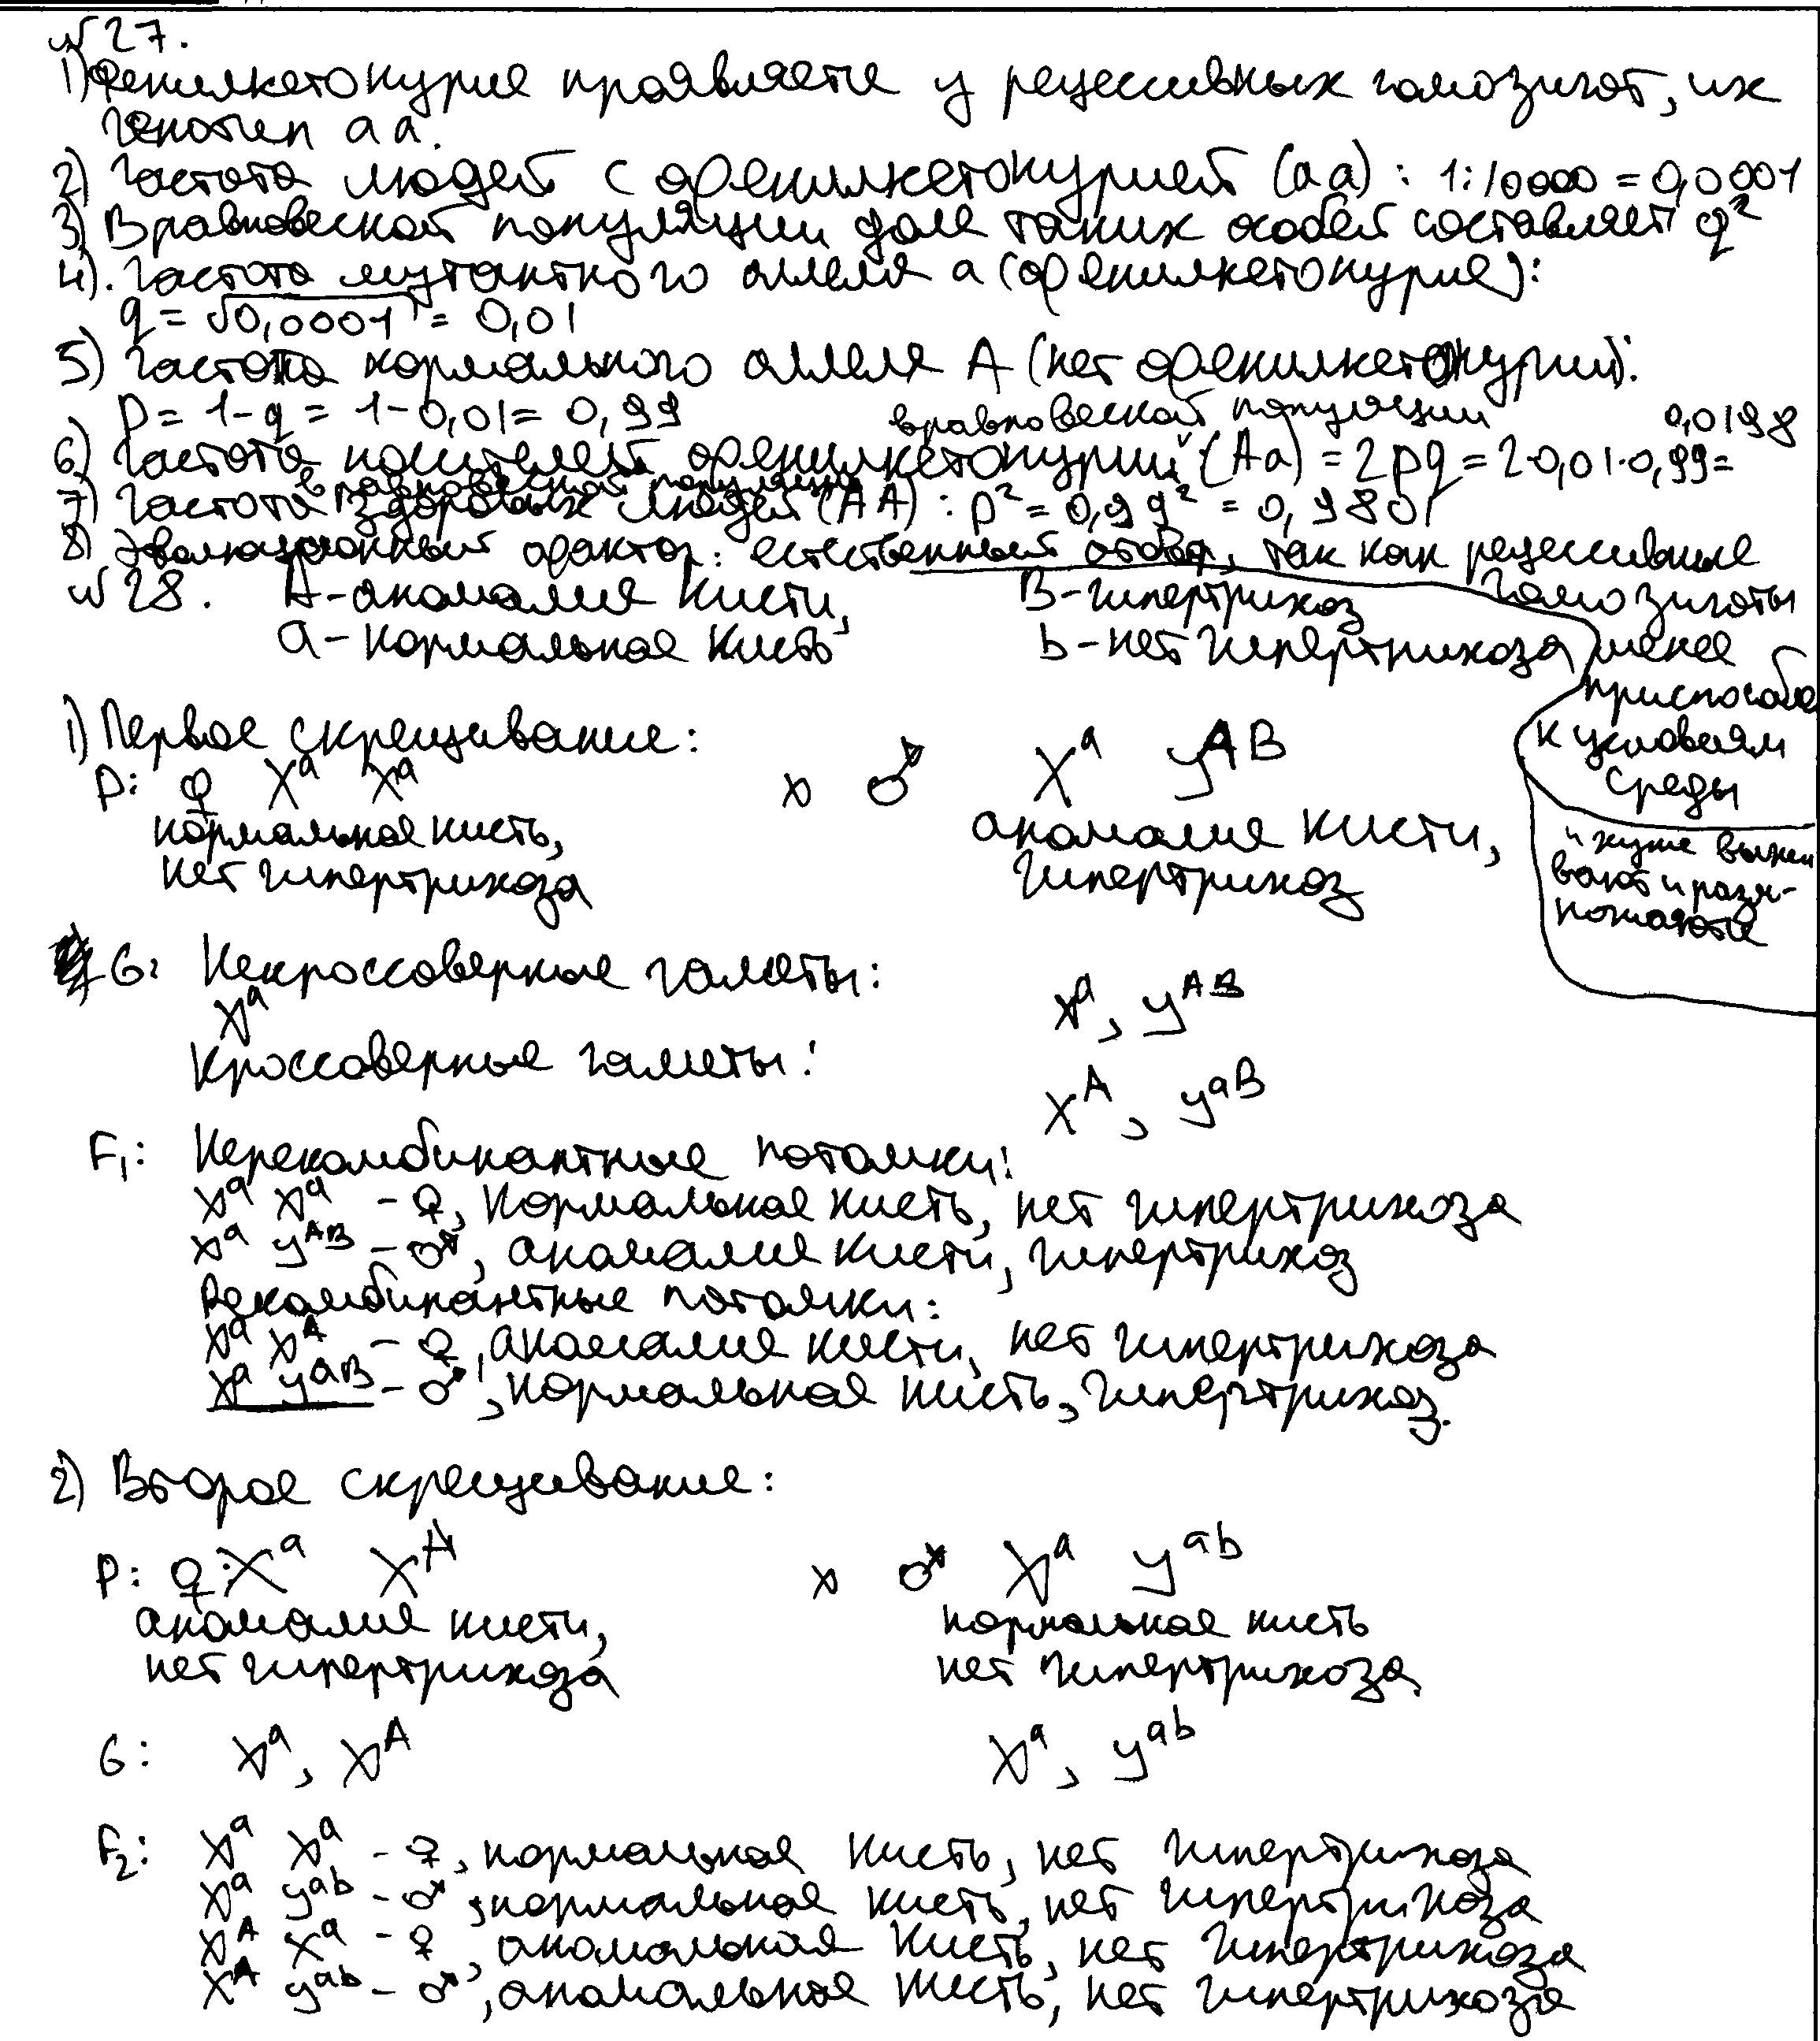 №27.
1) Фенилкетонурия проявляется у рецессивных гомозигот, их
генотип aa.
2) Частота людей с фенилкетонурией (aa): 1:10000 = 0,0001
3) В равновесной популяции доля таких особей составляет q²
4). Частота мутантного аллеля a (фенилкетонурия):
q = √0,0001 = 0,01
5) Частота нормального аллеля A (нет фенилкетонурии):
p = 1-q = 1-0,01 = 0,99
в равновесной популяции 0,0198
6) Частота носителей фенилкетонурии (Aa) = 2pq = 2·0,01·0,99 =
в равновесной популяции
7) Частота здоровых людей (AA): p² = 0,99² = 0,9801
8) Эволюционный фактор: естественный отбор, так как рецессивные
гомозиготы
менее
приспособ
к условиям
среды
и хуже выжи
вают и разм-
ножаются
№28. A-аномалия кисти, B-гипертрихоз
a-нормальная кисть b-нет гипертрихоза
1) Первое скрещивание:
P: ♀ Xᵃ Xᵃ x ♂ Xᵃ Yᴬᴮ
нормальная кисть, аномалия кисти,
нет гипертрихоза гипертрихоз
G: Некроссоверные гаметы:
Xᵃ Xᵃ, Yᴬᴮ
Кроссоверные гаметы:
Xᴬ, Yᵃᴮ
F₁: Нерекомбинантные потомки:
Xᵃ Xᵃ - ♀, нормальная кисть, нет гипертрихоза
Xᵃ Yᴬᴮ - ♂, аномалия кисти, гипертрихоз
Рекомбинантные потомки:
Xᵃ Xᴬ - ♀, аномалия кисти, нет гипертрихоза
Xᵃ Yᵃᴮ - ♂, нормальная кисть, гипертрихоз.
2) Второе скрещивание:
P: ♀: Xᵃ Xᴬ x ♂ Xᵃ Yᵃᵇ
аномалия кисти, нормальная кисть
нет гипертрихоза нет гипертрихоза
G: Xᵃ, Xᴬ Xᵃ, Yᵃᵇ
F₂: Xᵃ Xᵃ - ♀, нормальная кисть, нет гипертрихоза
Xᵃ Yᵃᵇ - ♂, нормальная кисть, нет гипертрихоза
Xᴬ Xᵃ - ♀, аномальная кисть, нет гипертрихоза
Xᴬ Yᵃᵇ - ♂, аномальная кисть, нет гипертрихоза